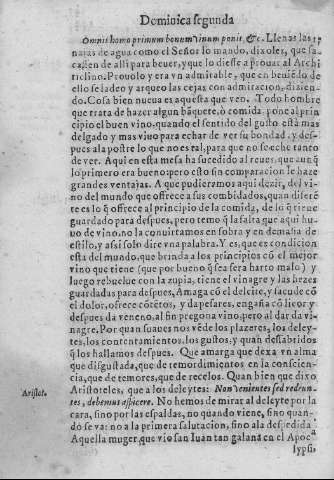 Dominica segunda
Omnis homo primum bonum vinum ponit, &c. Llenas las ti
najas de agua como el Señor lo mando, dixoles, que sa-
cassen de alli para beuer, y que lo diesse a prouar al Archi
triclino. Prouolo y era vn admirable, que en beuiēdo de
ello se ladeo y arqueo las cejas con admiracion, dizien-
do. Cosa bien nueua es aquesta que ven. Todo hombre
que trata de hazer algun bāquete, o comida, pone al prin
cipio el buen vino, quando el sentido del gusto està mas
delgado y mas viuo para echar de ver su bondad, y des-
pues a la postre lo que no es tal, para que no se eche tanto
de ver. Aqui en esta mesa ha sucedido al reues, que aunq̄
lo primero era bueno, pero esto sin comparacion le haze
grandes ventajas. A que pudieramos aqui dezir, del vi-
no del mundo que offrece a sus combidados, quan diferē
te es lo q̄ offrece al principio de la comida, de lo q̄ tiene
guardado para despues, pero temo q̄ la falta que aqui hu-
uo de vino, no la conuirtamos en sobra y en demasia de
estilo, y assi solo dire vna palabra. Y es, que es condicion
esta del mundo, que brinda a los principios cō el mejor
vino que tiene (que por bueno q̄ sea sera harto malo) y
luego rebuelue con la zupia, tiene el vinagre y las hezes
guardadas para despues, Amaga cō el deleite, y sacude cō
el dolor, ofrece cōtētos, y da pesares, engaña cō licor y
despues da veneno, al fin pregona vino, pero al dar da vi-
nagre. Por quan suaues nos vēde los plazeres, los deley-
tes, los contentamientos, los gustos, y quan dessabridos
q̄ los hallamos despues. Que amarga que dexa vn alma
que disgustada, que de remordimientos en la conscien-
cia, que de temores, que de recelos. Quan bien que dixo
Aristoteles, que a los deleytes: Non venientes sed redeun-
Aristot.
tes, debemus aspicere. No hemos de mirar al deleyte por la
cara, sino por las espaldas, no quando viene, sino quan-
do se va: no a la primera salutacion, sino a la despedida
Aquella muger que vio san Iuan tan galana en el Apoca
lypsi,